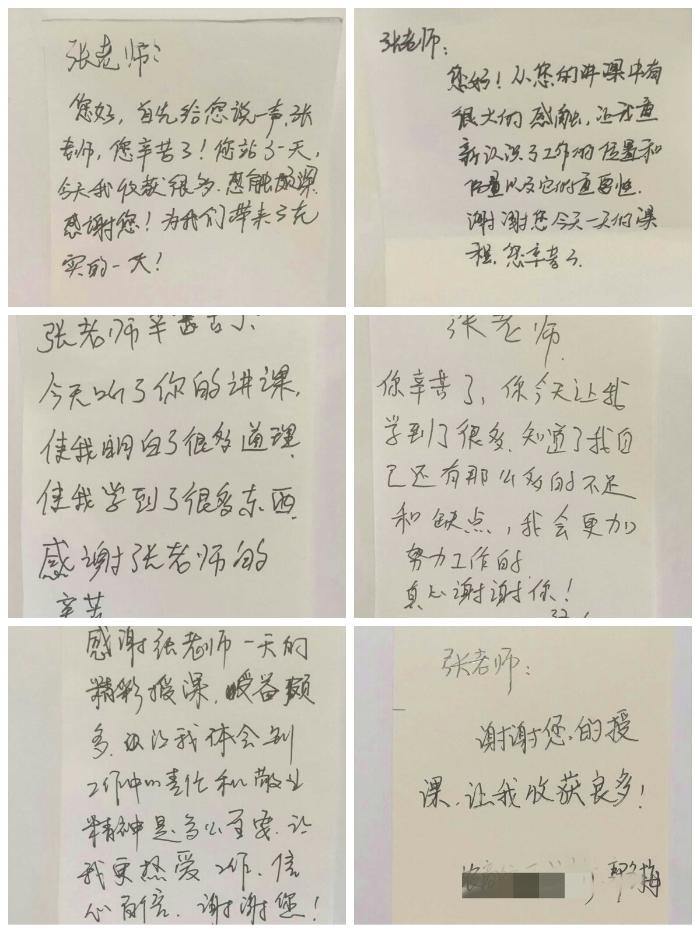 张老师：
您好，首先给您说一声，张
老师，您辛苦了！您站了一天，
今天我收获很多，感触颇深
感谢您！为我们带来了充
实的一天！
张老师：
您好！从您的讲课中有
很大的感触，让我重
新认识了工作的位置和
质量以及它的重要性.
谢谢您今天一天的课
程，您辛苦了
张老师辛苦了
今天听了你的讲课，
使我明白了很多道理.
使我学到了很多东西.
感谢张老师的
辛苦
张老师
你辛苦了，你今天让我
学到了很多.知道了我自
己还有那么多的不足
和缺点，我会更加
努力工作的.
真心谢谢你！
感谢张老师一天的
精彩授课，受益颇
多.也让我体会到
工作中的责任和敬业
精神是多么重要.让
我更热爱工作.信
心百倍.谢谢您！
张老师：
谢谢您的授
课，让我收获良多！